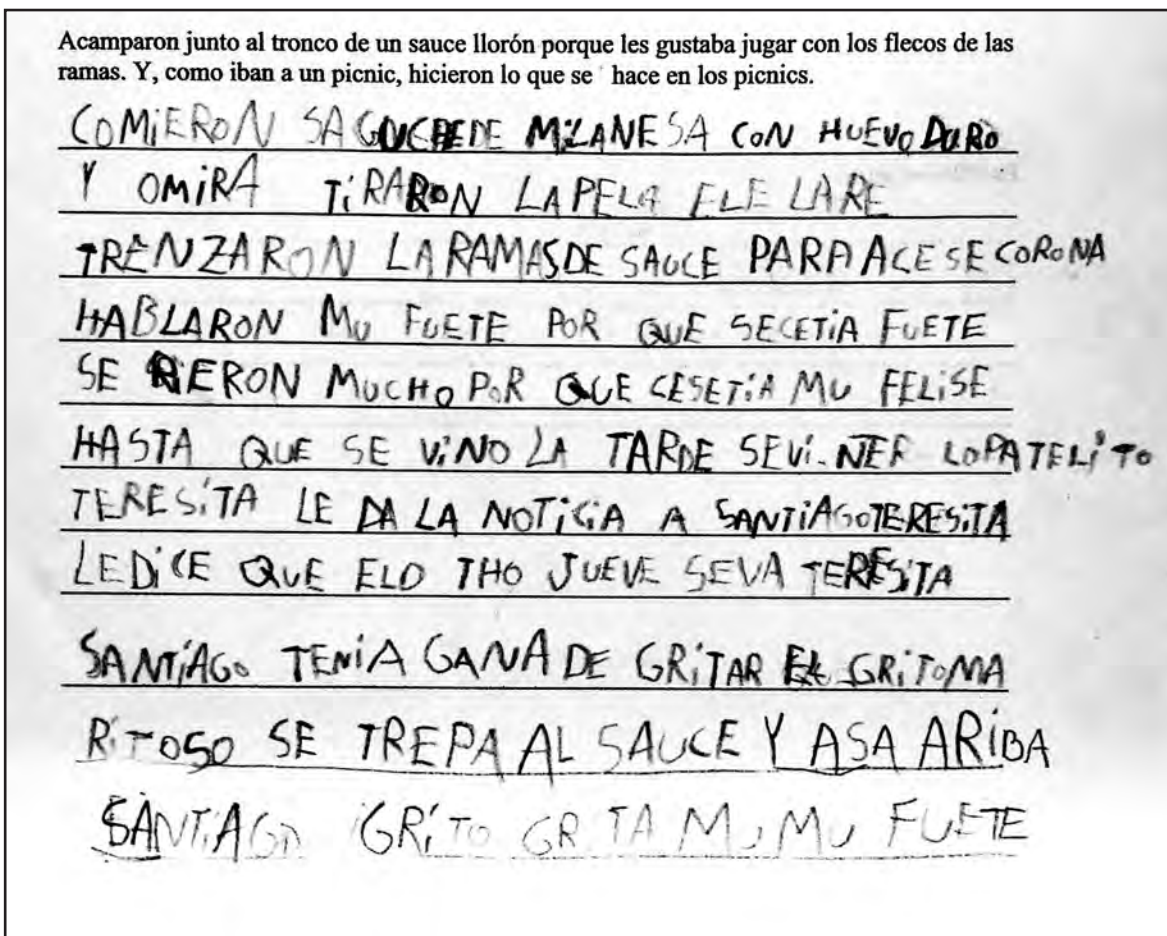 Acamparon junto al tronco de un sauce llorón porque les gustaba jugar con los flecos de las
ramas. Y, como iban a un picnic, hicieron lo que se hace en los picnics.
COMiERON SAGUCHEDE MiLANESA CON HUEVO DURO
Y OMiRA TiRARON LAPELA ELE LARE
TRENZARON LA RAMASDE SAUCE PARA ACESE CORONA
HABLARON MU FUETE POR QUE SECETiA FUETE
SE RiERON MUCHO POR QUE CESETiA MU FELiSE
HASTA QUE SE ViNO LA TARDE SEVi. NER LOPATELiTO
TERESiTA LE DA LA NOTiCiA A SANTiAGOTERESiTA
LEDiCE QUE ELO THO JUEVE SEVA TERESiTA
SANTiAGO TENiA GANA DE GRiTAR EL GRiTOMA
RiTOSO SE TREPA AL SAUCE Y ASA ARiBA
SANTiAGO GRiTO GRiTA MU MU FUETE